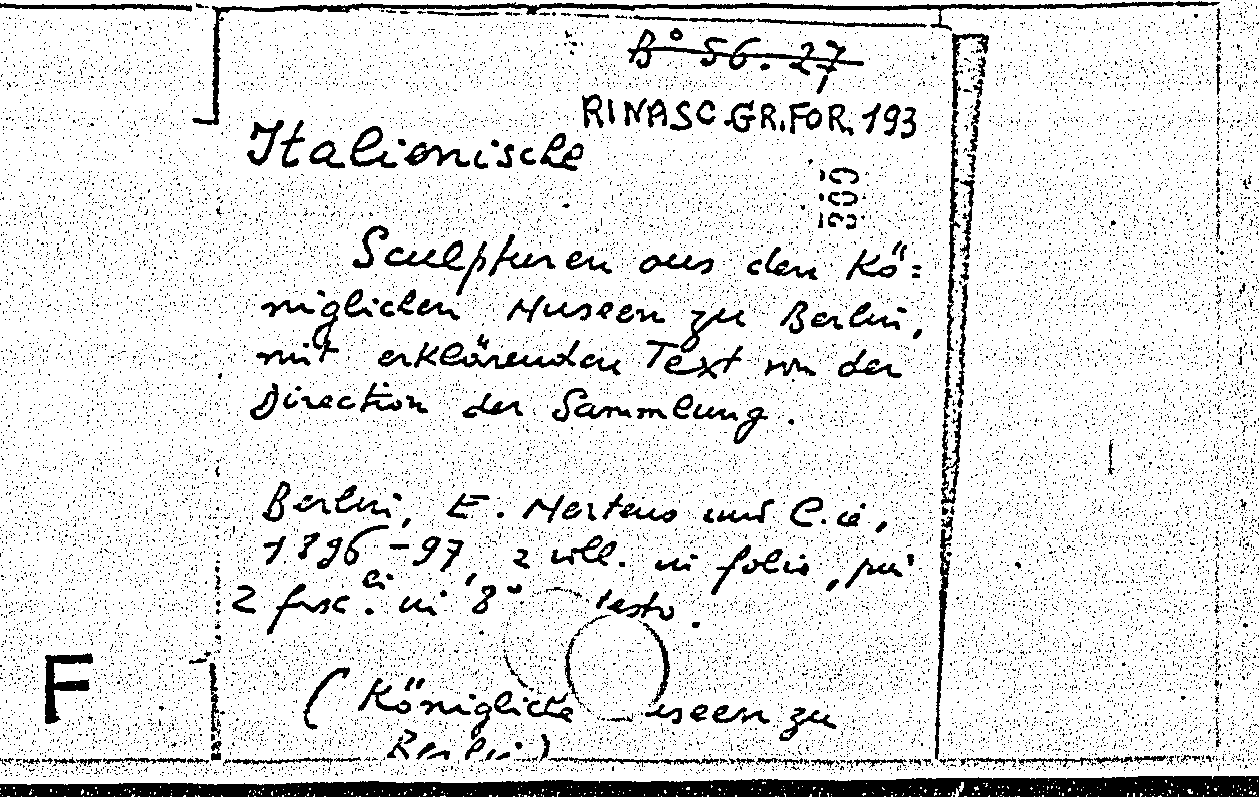 B° 56. 27
RINASC.GR.FOR. 193
Italienische
300
Sculpturen aus den Kö=
niglichen Museen zu Berlin,
mit erklärenden Text von der
Direction der Sammlung.
Berlin, E. Mertens und C.ie,
1896-97, 2 voll. in folio, più
2 fasc.li in 8° testo.
F
(Königliche useen zu
Berlin)